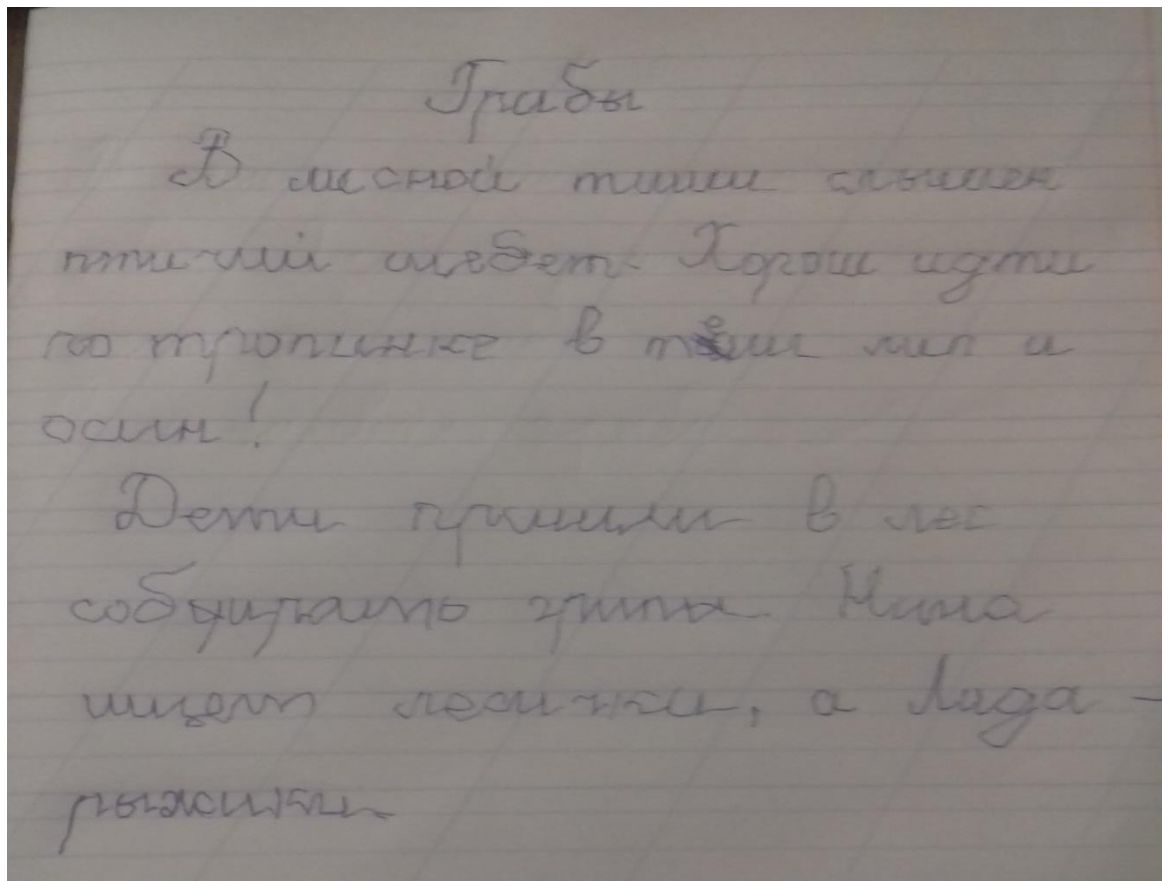 Грабы
В лесной тиши слышен
птичий щебет. Хорош идти
по тропинке в тени лип и
осин!
Дети пришли в лес
собирать грипы. Нина
ищет лесички, а Лида –
рыжики.